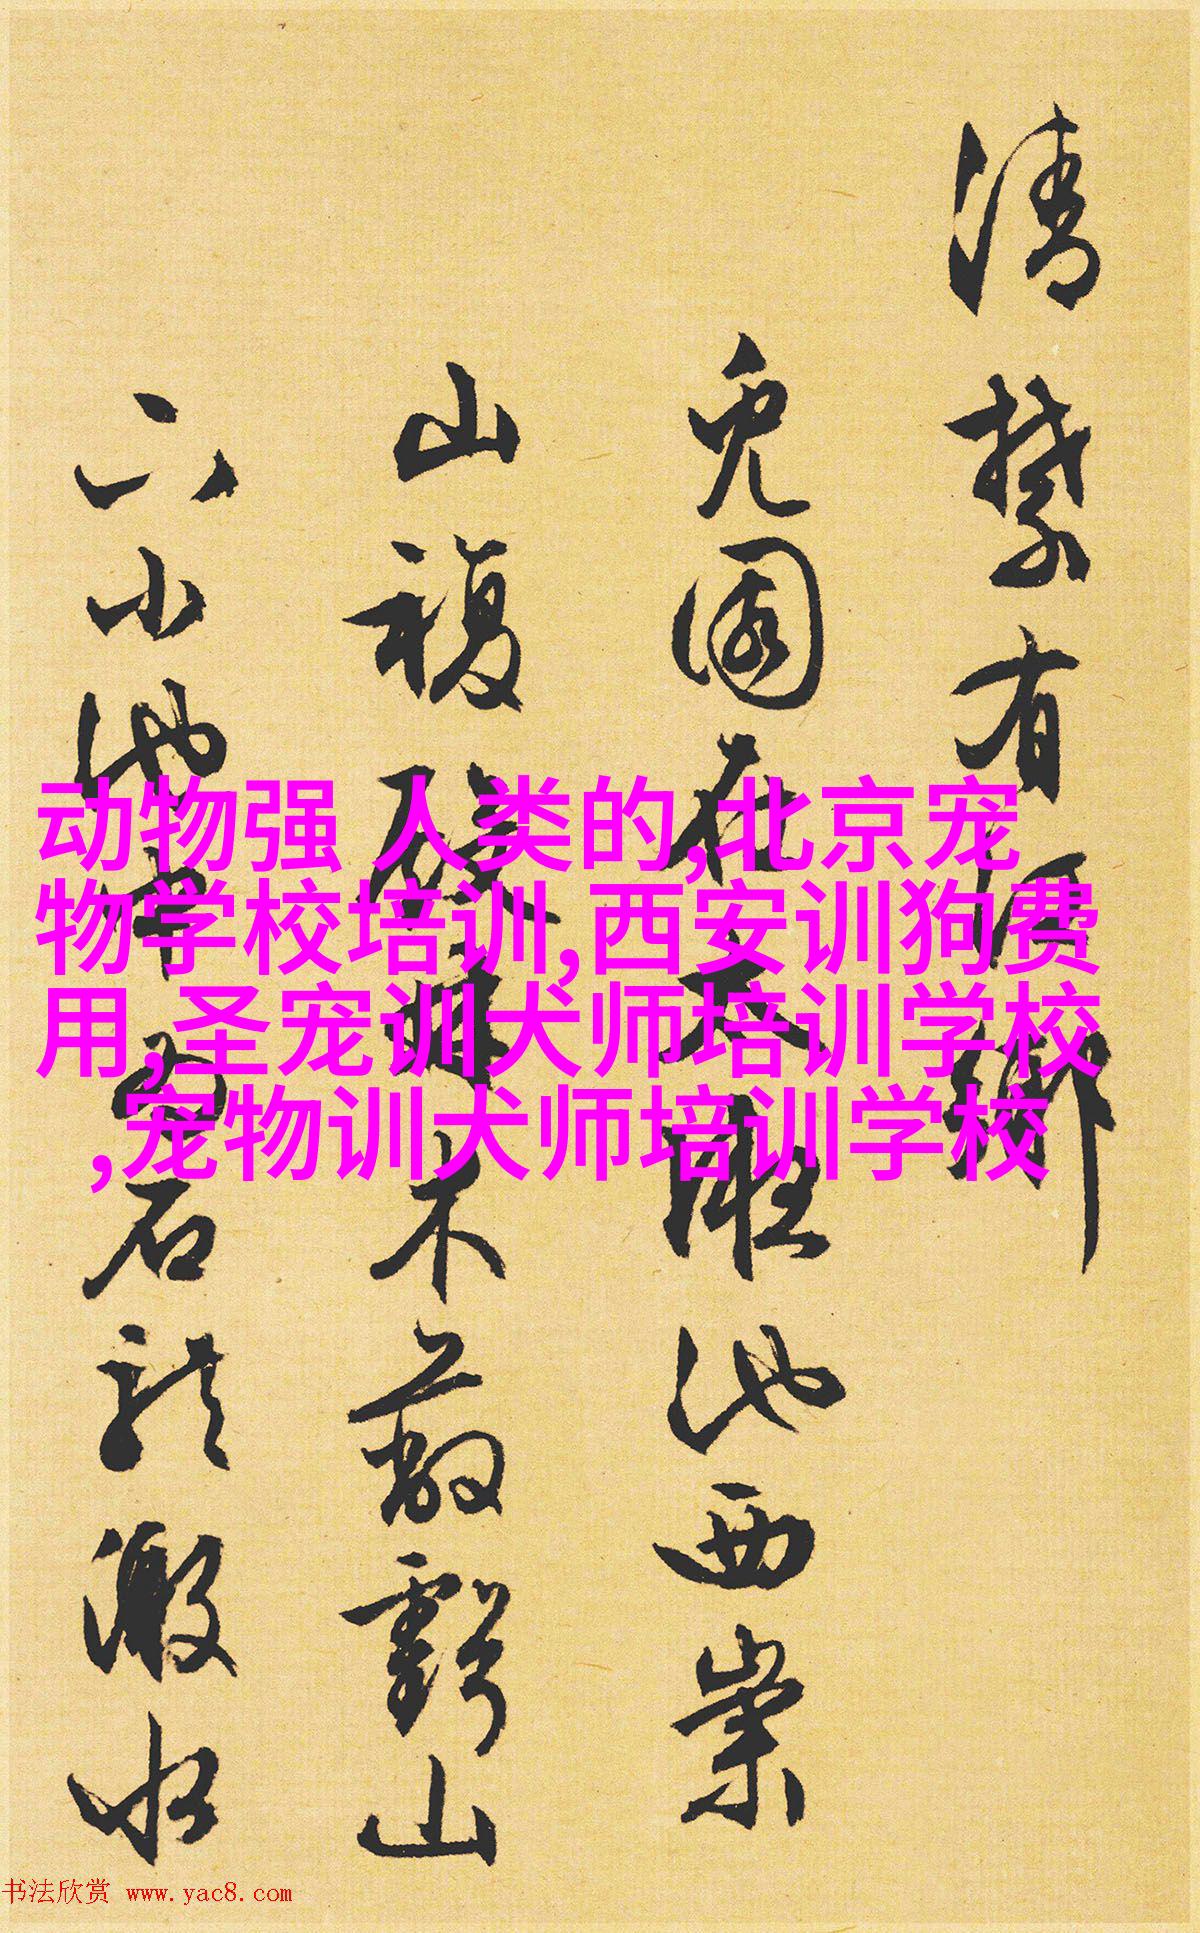 清禁有鄉
兔園在太液池西崇
山複殿林木蔽虧山
下小池石龍激水
动物强 人类的,北京宠
物学校培训,西安训狗费
用,圣宠训犬师培训学校
,宠物训犬师培训学校
书法欣赏 www.yac8.com